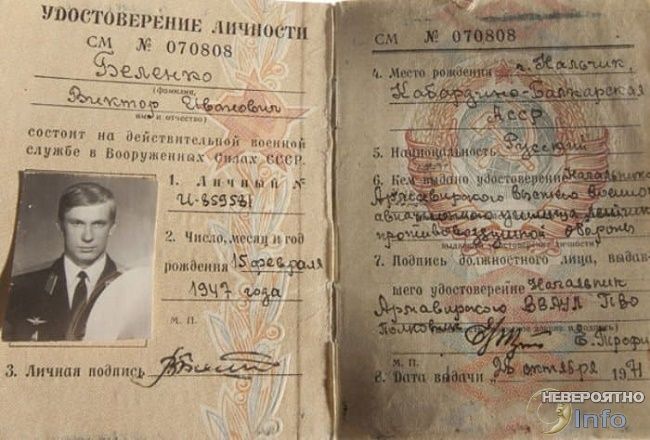 УДОСТОВЕРЕНИЕ ЛИЧНОСТИ
СМ № 070808
Беленко
(фамилия,
Виктор Иванович
имя и отчество)
состоит на действительной военной
службе в Вооруженных Силах СССР.
1. Личный №
И-859531
2. Число, месяц и год
рождения 15 февраля
1947 года
М. П.
3. Личная подпись
СМ № 070808
4. Место рождения г. Нальчик,
Кабардино-Балкарская
АССР
5. Национальность Русский
6. Кем выдано удостоверение Начальником
Армавирского высшего военного
авиационного училища летчиков
противовоздушной обороны
7. Подпись должностного лица, выдав-
шего удостоверение Начальник
Армавирского ВВАУЛ ПВО
полковник
М. П.
8. Дата выдачи октября 1971
НЕВЕРОЯТНО
Info